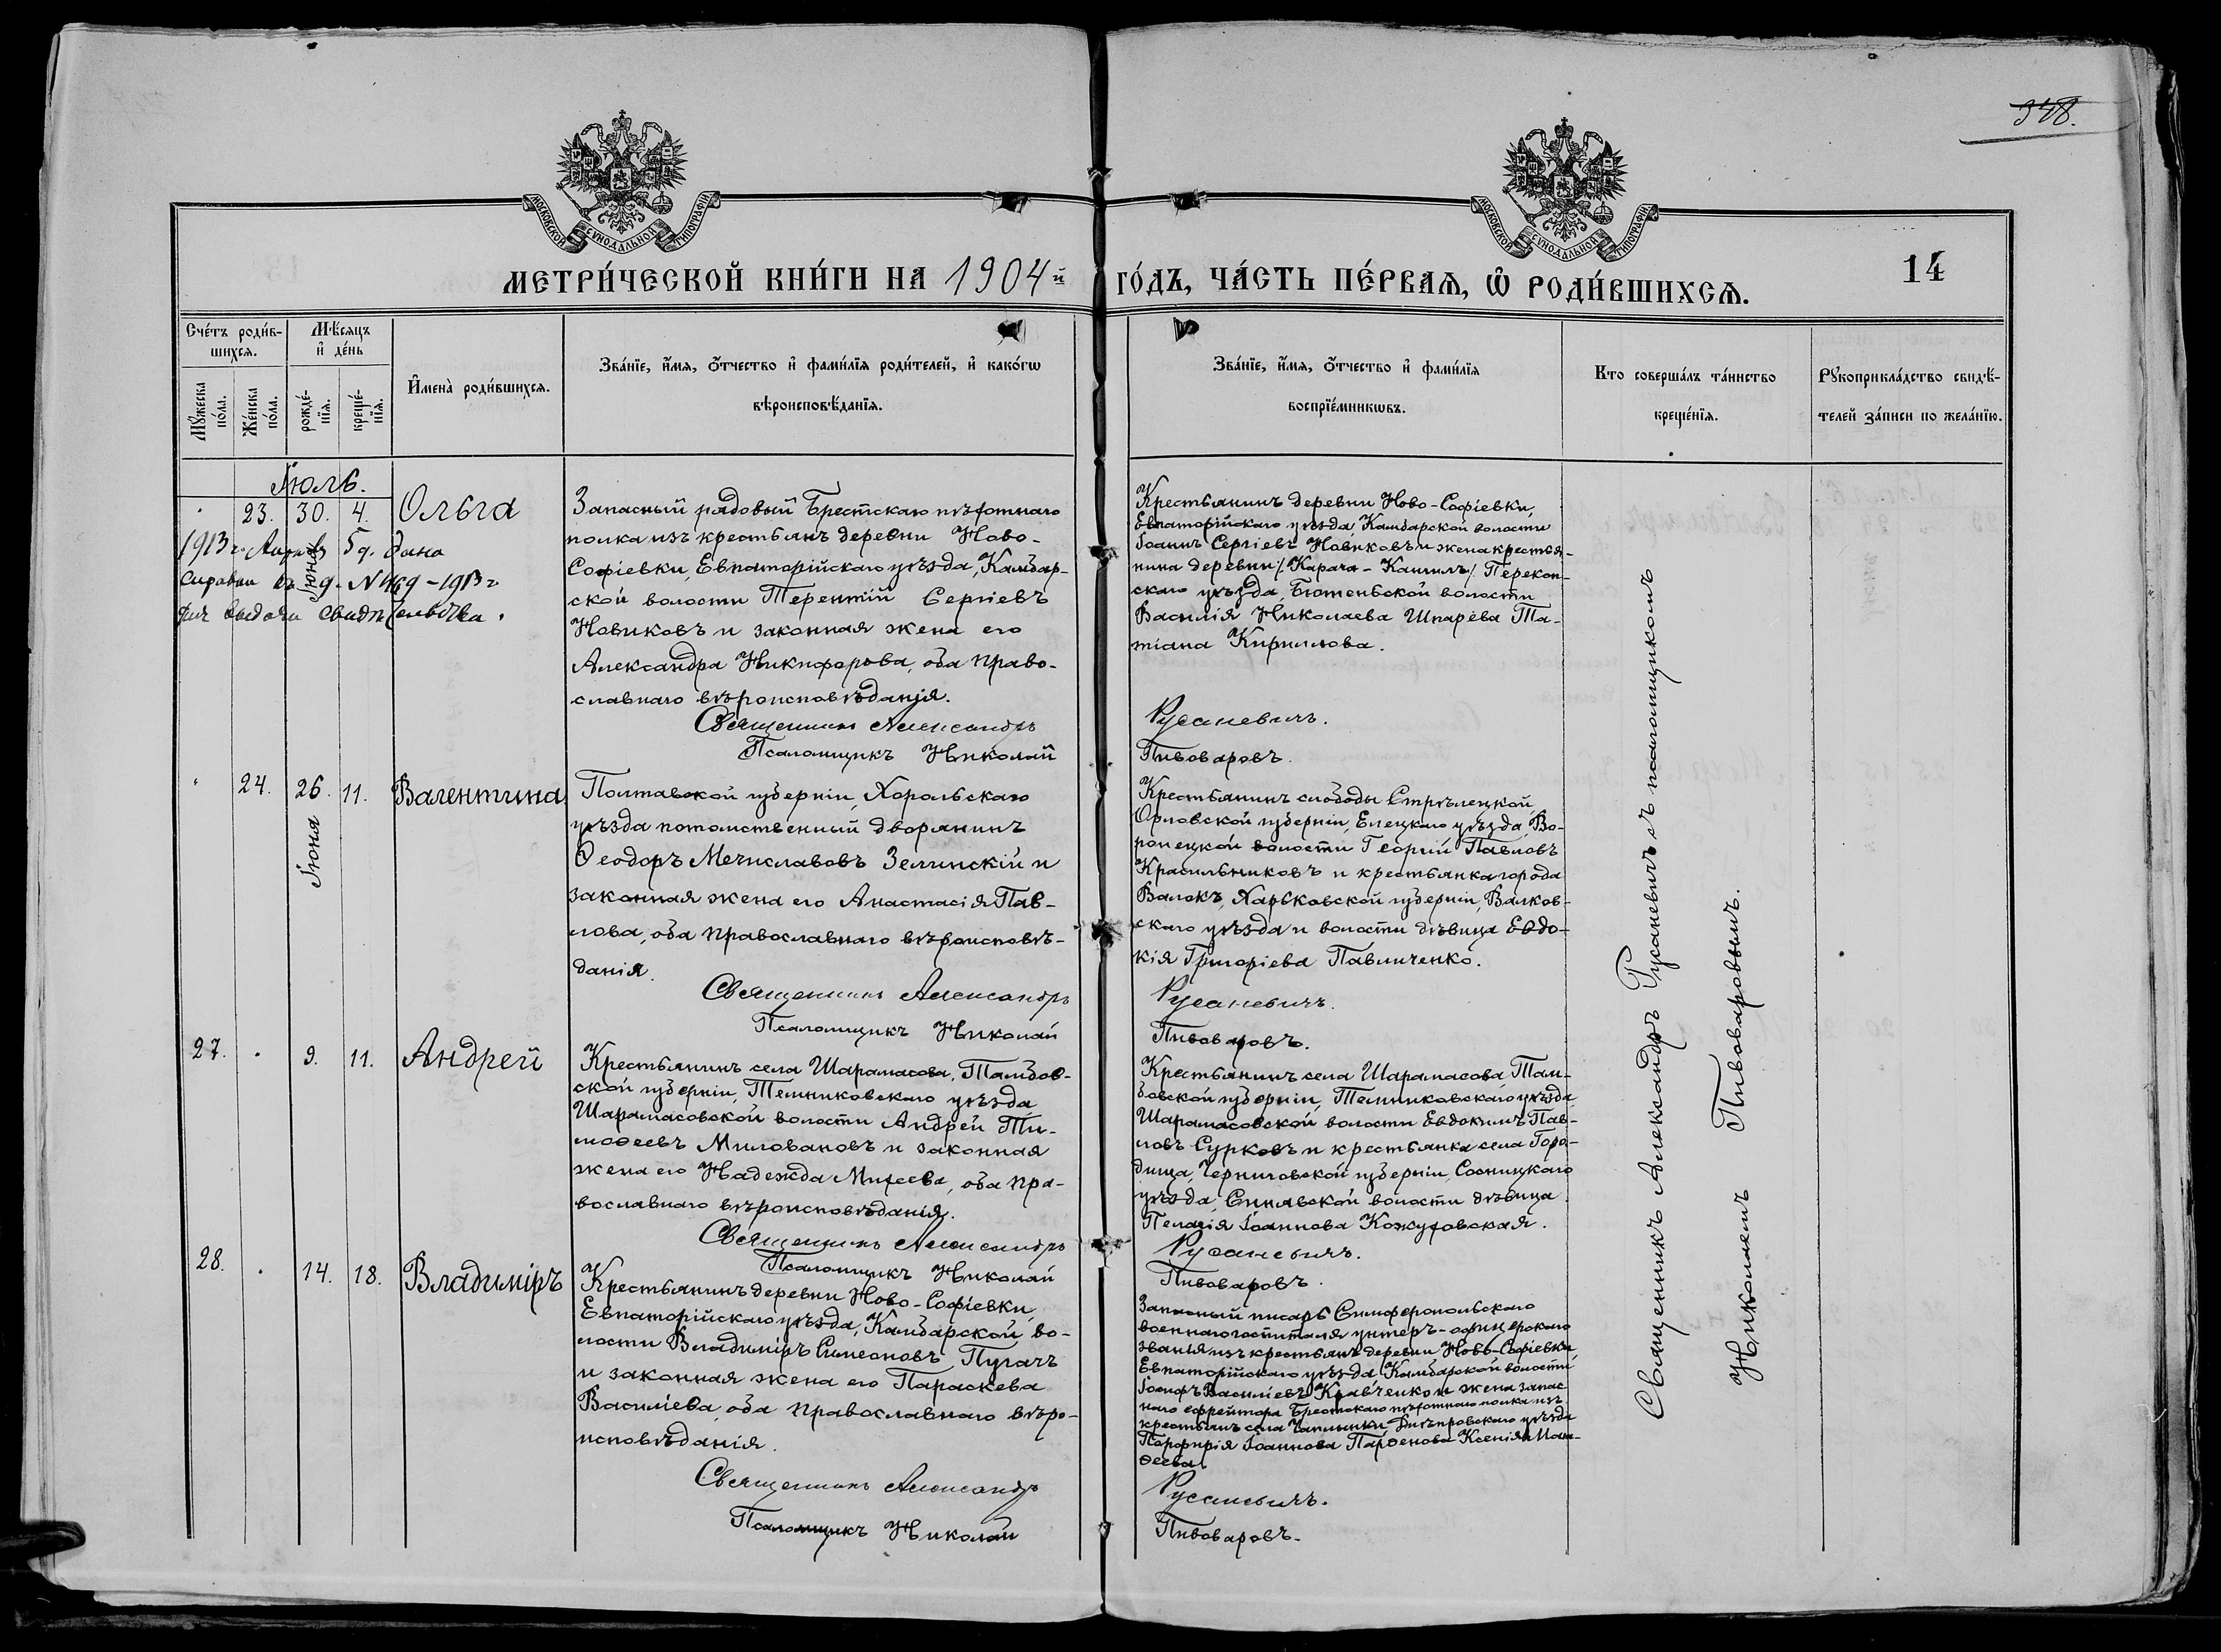 348.
МОСКОВСКОЙ СѴНОДАЛЬНОЙ ТИПОГРАФІИ
МОСКОВСКОЙ СѴНОДАЛЬНОЙ ТИПОГРАФІИ
МЕТРИ́ЧЕСКОЙ КНИ́ГИ НА 1904й ГО́ДЪ, ЧА́СТЬ ПЕ́РВАѦ, Ѡ҆ РОДИ́ВШИХСѦ.
14
Сче́тъ роди́в-
шихсѧ.
Мꙋ́жеска по́ла.
Же́нска по́ла.
Мѣ́сѧцъ и҆ де́нь
рожде́-нїѧ.
креще́-нїѧ.
И҆мена̀ роди́вшихсѧ.
Зва́нїе, и҆́мѧ, ѻ҆́тчество и҆ фами́лїѧ роди́телей, и҆ како́гѡ
вѣроисповѣ́данїѧ.
Зва́нїе, и҆́мѧ, ѻ҆́тчество и҆ фами́лїѧ
воспрїе́мникѡвъ.
Кто соверша́лъ та́инство
креще́нїѧ.
Рꙋкоприкла́дство свидѣ́-
телей за́писи по жела́нїю.
Іюль.
23. 30. 4. Ольга
Іюня
1913 г. 5 д. дана
справки №469-1913 г
для выдачи свидѣтельства.
Запасный рядовый Брестскаго пѣхотнаго
полка изъ крестьянъ деревни Ново-
Софіевки, Евпаторійскаго уѣзда, Камбар-
ской волости Терентій Сергіевъ
Новиковъ и законная жена его
Александра Никифорова, оба право-
славнаго вѣроисповѣданія.
Священникъ Александръ
Псаломщикъ Николай
Крестьянинъ деревни Ново-Софіевки,
Евпаторійскаго уѣзда, Камбарской волости
Іоаннъ Сергіевъ Новиковъ и жена крестья-
нина деревни /Карача-Кангилъ/ Перекоп-
скаго уѣзда, Бютеньской волости
Василія Николаева Шпарёва Та-
тіана Кириллова.
Русаневичъ.
Пивоваровъ.
24. 26. 11. Валентина
Іюня
Полтавской губерніи, Хорольскаго
уѣзда потомственный дворянинъ
Ѳеодоръ Мечиславовъ Зелинскій и
законная жена его Анастасія Пав-
лова, оба православнаго вѣроисповѣ-
данія.
Священникъ Александръ
Псаломщикъ Николай
Крестьянинъ слободы Стрѣлецкой,
Орловской губерніи, Елецкаго уѣзда, Во-
ронецкой волости Георгій Павловъ
Красильниковъ и крестьянка города
Валокъ, Харьковской губерніи, Валков-
скаго уѣзда и волости дѣвица Евдо-
кія Григоріева Павличенко.
Русаневичъ.
Пивоваровъ.
27. 9. 11. Андрей
Крестьянинъ села Шарамасова, Тамбов-
ской губерніи, Темниковскаго уѣзда
Шарамасовской волости Андрей Ти-
моѳеевъ Миловановъ и законная
жена его Надежда Михеева, оба пра-
вославнаго вѣроисповѣданія.
Священникъ Александръ
Псаломщикъ Николай
Крестьянинъ села Шарамасова, Там-
бовской губерніи, Темниковскаго уѣзда,
Шарамасовской волости Евдокимъ Пав-
ловъ Сурковъ и крестьянка села Горо-
дища, Черниговской губерніи, Сосницкаго
уѣзда, Синявской волости дѣвица
Пелагія Іоаннова Кожуховская.
Русаневичъ.
Пивоваровъ.
28. 14. 18. Владиміръ
Крестьянинъ деревни Ново-Софіевки,
Евпаторійскаго уѣзда, Камбарской во-
лости Владиміръ Симеоновъ Пугачъ
и законная жена его Параскева
Василіева, оба православнаго вѣро-
исповѣданія.
Священникъ Александръ
Псаломщикъ Николай
Запасный писарь Симферопольскаго
военнаго госпиталя унтеръ-офицерскаго
званія изъ крестьянъ деревни Ново-Софіевки,
Евпаторійскаго уѣзда, Камбарской волости
Іосифъ Василіевъ Кравченко и жена запас-
наго ефрейтора Брестскаго пѣхотнаго полка изъ
крестьянъ села Чаплинки, Днѣпровскаго уѣзда
Порфирія Іоаннова Парѳенова Ксенія Мат-
ѳеева.
Русаневичъ.
Пивоваровъ.
Священникъ Александръ Русаневичъ съ псаломщикомъ
Николаемъ Пивоваровымъ.